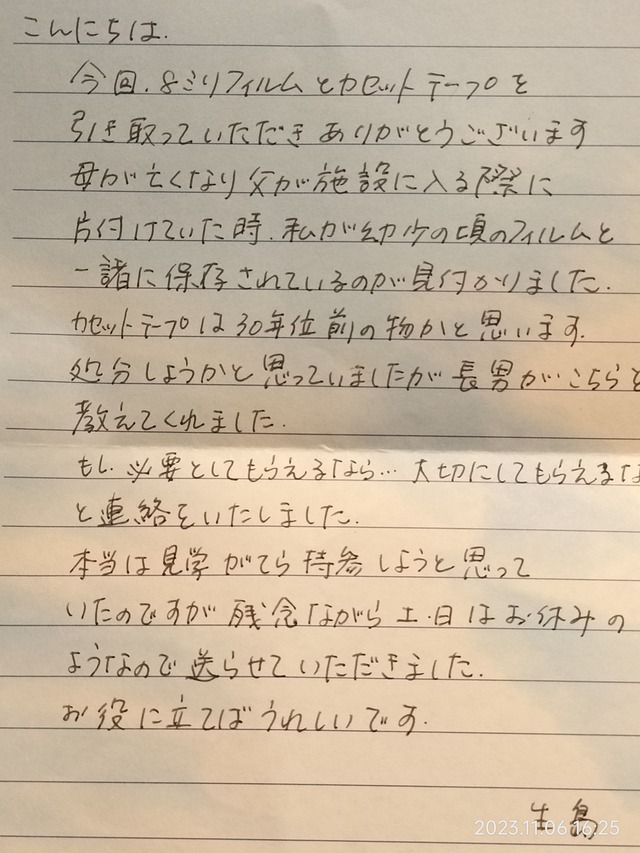 こんにちは.
今回.8ミリフィルムとカセットテープを
引き取っていただきありがとうございます
母が亡くなり父が施設に入る際に
片付けていた時.私が幼少の頃のフィルムと
一諸に保存されているのが見付かりました.
カセットテープは30年位前の物かと思います.
処分しようかと思っていましたが長男がこちらを
教えてくれました.
もし必要としてもらえるなら…大切にしてもらえるな
と連絡をいたしました.
本当は見学がてら持参しようと思って
いたのですが残念ながら土.日はお休みの
ようなので送らせていただきました.
お役に立てばうれしいです.
2023.11.06 16:25